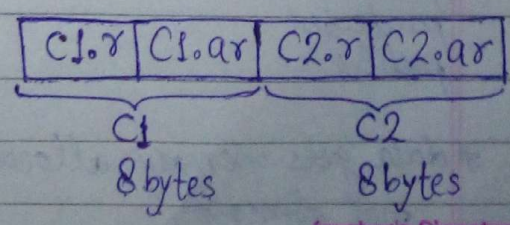 C1.r C1.ar C2.r C2.ar
C1 C2
8bytes 8bytes